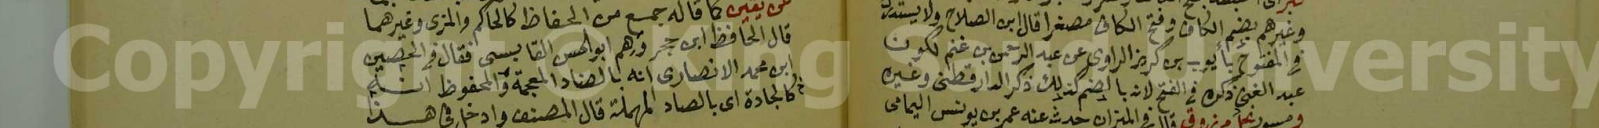 وغيرهم بضم الكاف وفتح الكاف مصغرا قال ابن الصلاح ولا يستدرك
في المفتوح بأيوب بن كريز الراوي عن عبد الرحمن بن غنم لكون
عبد الغني ذكره في الفتح لانه بالضم كذلك ذكره الدارقطني وغيره
قال في الميزان حدث عنه عمر بن يونس اليمامي
عن يقين كما قاله جمع من الحفاظ كالحاكم والمزي وغيرهما
قال الحافظ ابن حجر ووهم ابو الحسن القابسي فقال في الحصين
ابن محمد الانصاري انه بالضاد المعجمة والمحفوظ انه
كالجادة اي بالصاد المهملة قال المصنف وادخل في هذا
Copyright © King University